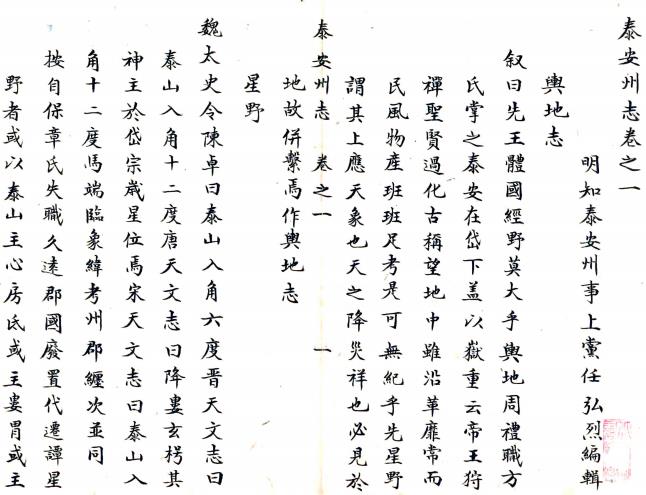 泰安州志卷之一
明知泰安州事上黨任弘烈編輯
輿地志
叙曰先王體國經野莫大乎輿地周禮職方
氏掌之泰安在岱下盖以嶽重云帝王狩
禪聖賢過化古稱望地中雖沿革靡常而
民風物產班班足考是可無紀乎先星野
謂其上應天象也天之降災祥也必見於
泰安州志 卷之一 一
地故併繫焉作輿地志
星野
魏太史令陳卓曰泰山入角六度晉天文志曰
泰山入角十二度唐天文志曰降婁玄枵其
神主於岱宗嵗星位焉宋天文志曰泰山入
角十二度馬端臨象緯考州郡纏次並同
按自保章氏失職久遠郡國廢置代遷譚星
野者或以泰山主心房氐或主婁胃或主